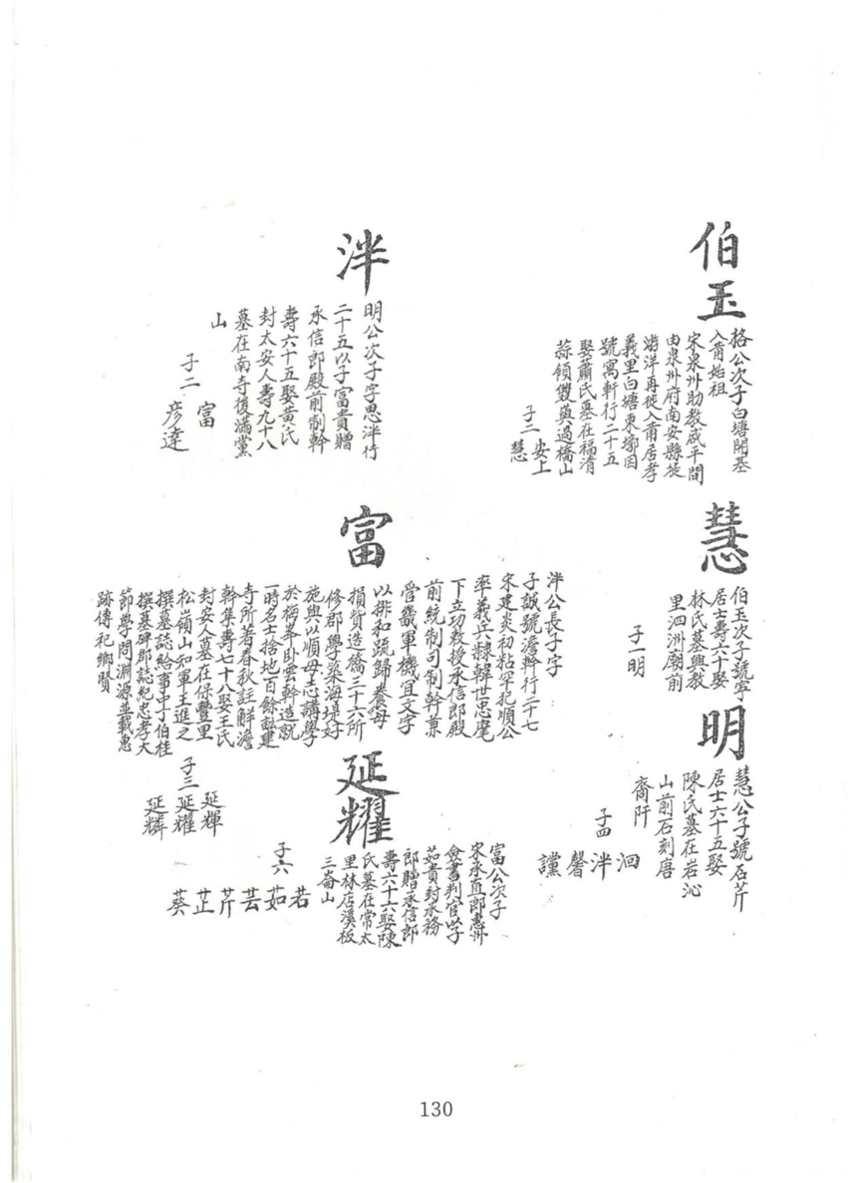 伯玉
格公次子白塘開基
入莆始祖
宋泉州助教咸平間
由泉州府南安縣徙
游洋再徙入莆居孝
義里白塘東墩因
號寓軒行二十五
娶蕭氏墓在福清
蒜領雙輿過橋山
子二 安上
慧
慧
伯玉次子號寧
居士壽六十娶
林氏墓興教
里泗洲廟前
子一明
明
慧公子號石芹
居士六十五娶
陳氏墓在岩沁
山前石刻唐
裔阡
子四
泗
泮
馨
讜
泮
明公次子字思泮行
二十五以子富貴贈
承信郎殿前制幹
壽六十五娶黃氏
封太安人壽九十八
墓在南寺後滿黨
山
子二 富
彥達
富
泮公長子字
子誠號澹軒行二十七
宋建炎初粘罕犯順公
率義兵隸韓世忠麾
下立功授承信郎殿
前統制司制幹兼
管畿軍機宜文字
以排和疏歸養母
損貲造橋三十六所
修郡學築海堤好
施與以順母志講學
於梅峯卧雲幹造就
一時名士捨地百餘畝建
寺所著春秋註解澹
幹集壽七十八娶王氏
封安人墓在保豐里
松嶺山知軍王進之
撰墓誌給事中丁伯桂
撰墓碑郡誌紀忠孝大
節學問淵源並載惠
跡傳祀鄉賢
子三
延輝
延耀
延粦
延耀
富公次子
宋承直郎惠州
僉書判官以子
茹貴封承務
郎贈承信郎
壽六十六娶陳
氏墓在常太
里林店溪板
三崙山
子六
若
茹
芸
芹
芷
葵
130